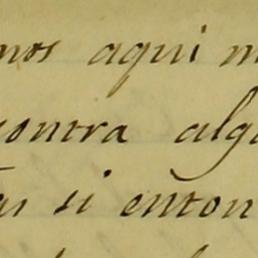 mos aqui m
contra alg
as si enton